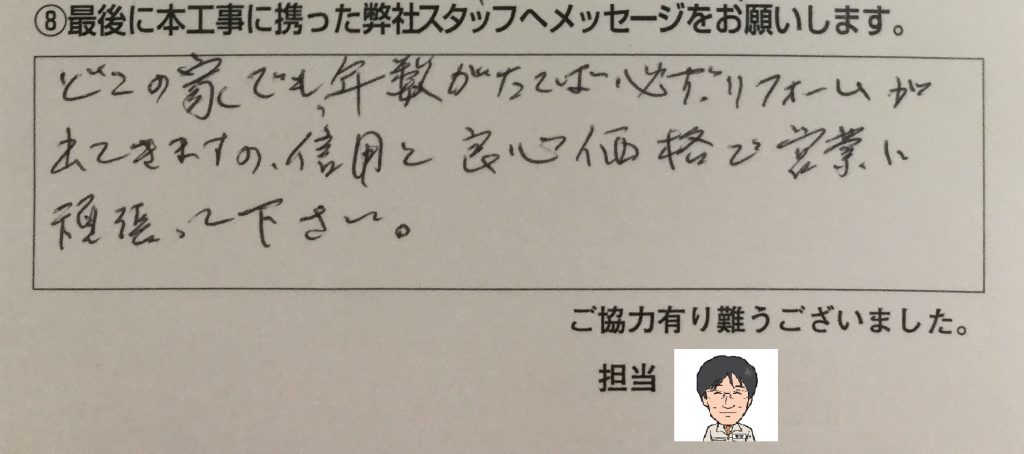 ⑧最後に本工事に携った弊社スタッフへメッセージをお願いします。
どこの家でも、年数がたてば必ずリフォームが
出てきますの、信用と良心価格で営業に
頑張って下さい。
ご協力有り難うございました。
担当